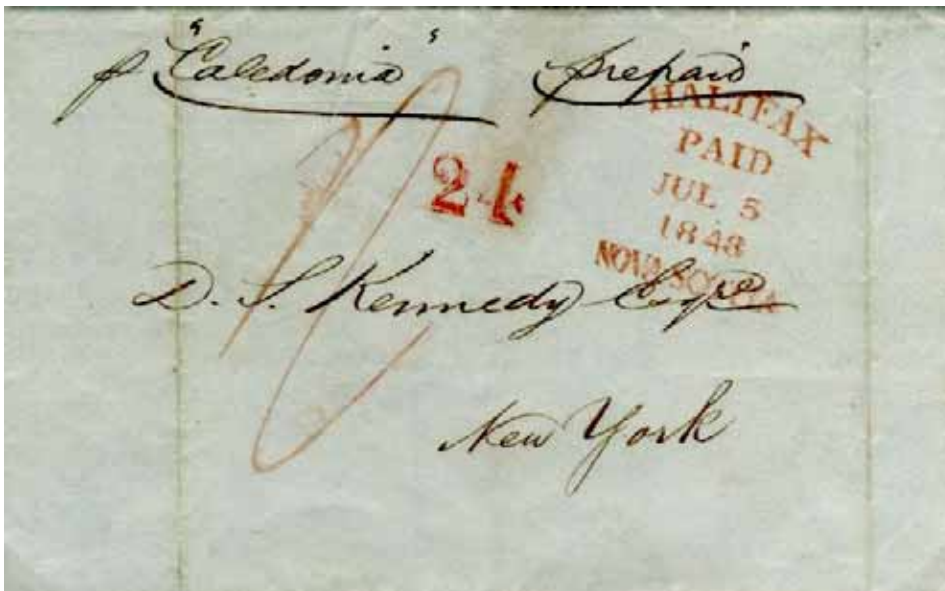 p "Caledonia" prepaid
HALIFAX
PAID
JUL 5
1848
NOVA SCOTIA
24
D. S. Kennedy Esqre
New York